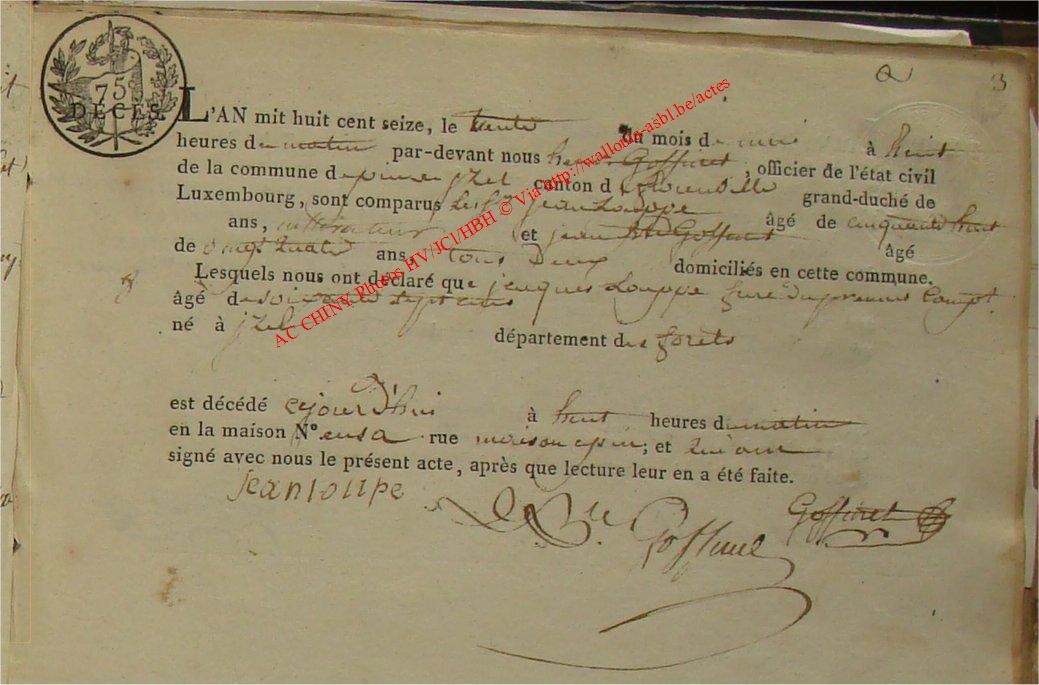 75
DÉCÈS
3
L'AN mil huit cent seize, le trente du mois de à huit
heures du matin par-devant nous Goffinet, officier de l'état civil
de la commune de izel canton de florenville grand-duché de
Luxembourg, sont comparus jean Louppe âgé de cinquante huit
ans, et jean Goffinet âgé
de vingt quatre ans, tous deux domiciliés en cette commune.
Lesquels nous ont déclaré que jacques Louppe
âgé de soixante sept ans
né à izel département des forets
est décédé cejourd'hui à huit heures du matin
en la maison N° en sa rue maison ; et ont
signé avec nous le présent acte, après que lecture leur en a été faite.
jean loupe
Goffinet
Goffinet
AC CHINY Photos HV/JCl/HBH © Via http://wallonia-asbl.be/actes